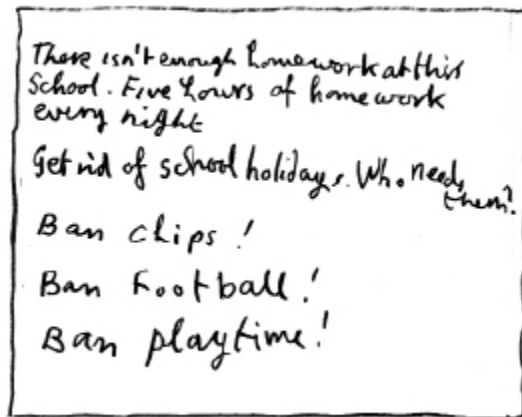 There isn't enough homework at this
School. Five hours of homework
every night
Get rid of school holidays. Who needs
them?
Ban chips!
Ban Football!
Ban playtime!